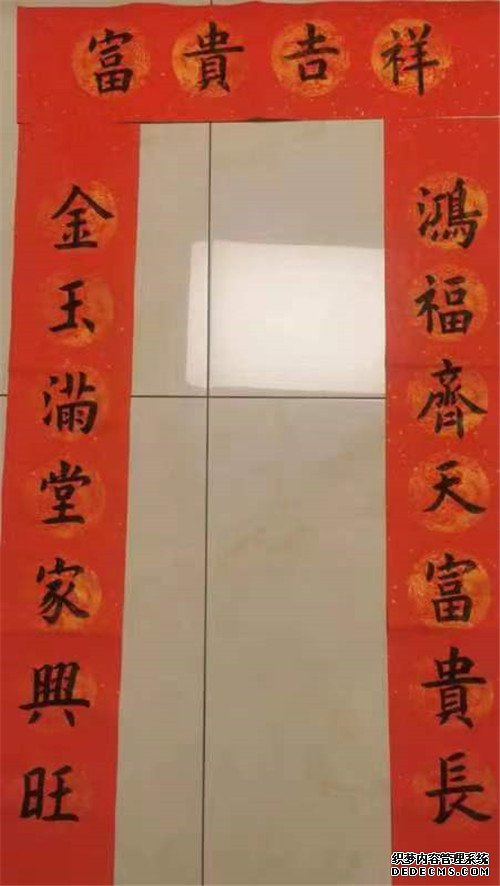 富貴吉祥
鴻福齊天富貴長
金玉滿堂家興旺
织梦内容管理系统
DEDECMS.COM